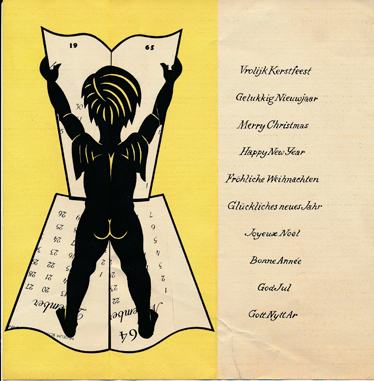 19 65
Vrolijk Kerstfeest
Gelukkig Nieuwjaar
Merry Christmas
Happy New Year
Fröhliche Weihnachten
Glückliches neues Jahr
Joyeux Noël
Bonne Année
God Jul
Gott Nytt Ar
26
27
28
29
30
31
7
6
5
22
64